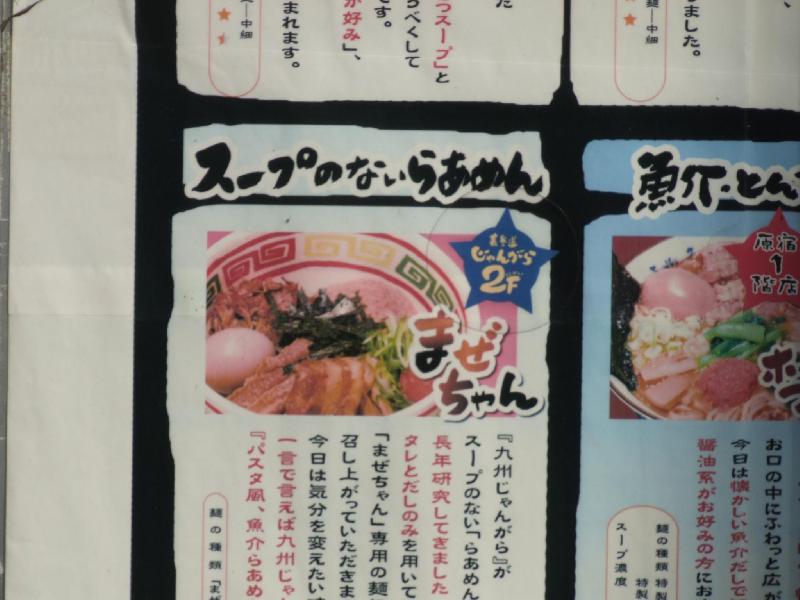 つスープ」と
らべくして
です。
が好み」、
まれます。
麺―中細
りました。
麺―中細
スープのないらあめん
表参道
じゃんがら
2F
まぜ
ちゃん
『九州じゃんがら』が
スープのない「らあめん
長年研究してきました
タレとだしのみを用いて
「まぜちゃん」専用の麺
召し上がっていただきま
今日は気分を変えたい
一言で言えば九州じゃ
『パスタ風、魚介らあめ
麺の種類「まぜ
魚介・とん
原宿
1
階店
お口の中にふわっと広が
今日は懐かしい魚介だしで
醤油系がお好みの方にお
麺の種類 特製
特製
スープ濃度